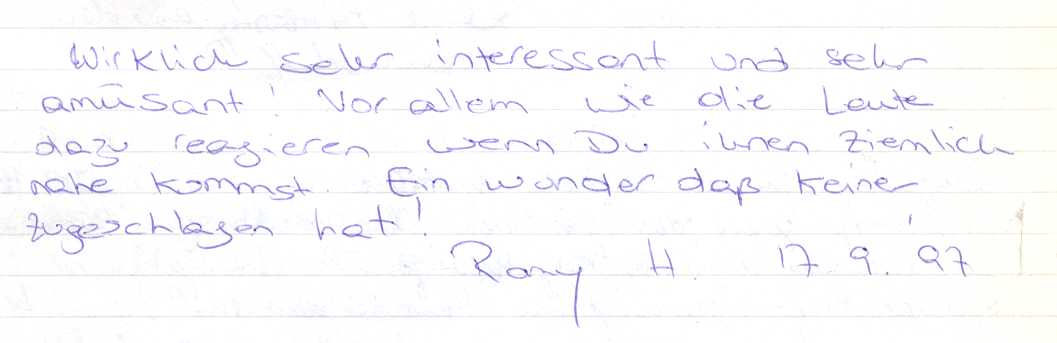 Wirklich sehr interessant und sehr
amüsant! Vor allem wie die Leute
dazu reagieren wenn Du ihnen ziemlich
nahe kommst. Ein wunder daß keiner
zugeschlagen hat!
Rany H. 17.9.'97